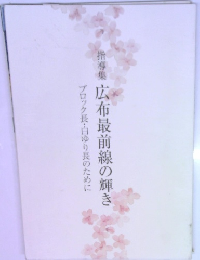 指導集
広布最前線の輝き
ブロック長・白ゆり長のために